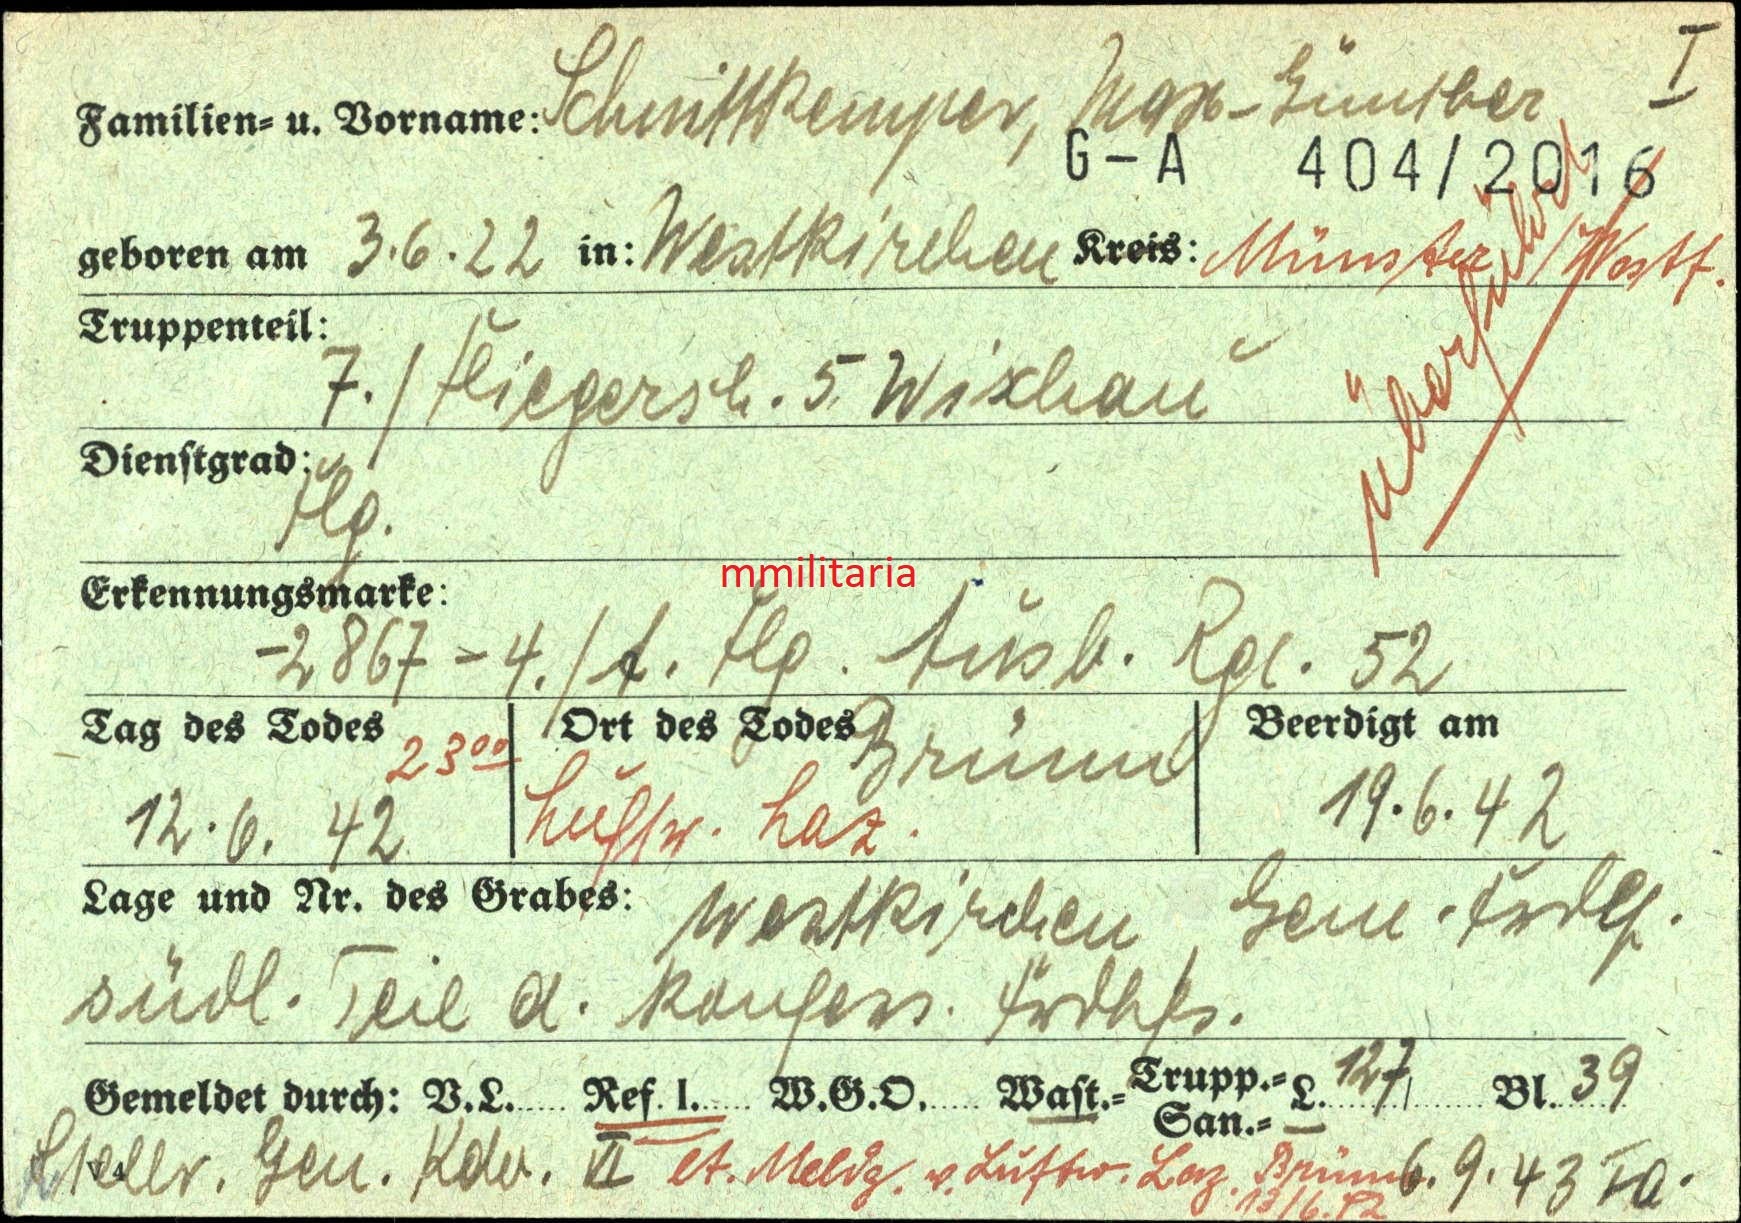 I
Familien- u. Vorname: Schnittkemper, Max-Günther
G-A 404/2016
geboren am 3.6.22 in: Westkirchen Kreis: Münster/Westf.
überführt
Truppenteil:
7./Fliegersch. 5 Wischau
Dienstgrad:
Flg.
mmilitaria
Erkennungsmarke:
-2867- 4./ Flg. Ausb. Rgt. 52
Tag des Todes 23⁰⁰ Ort des Todes Brünn Beerdigt am
12.6.42 Luftw. Laz. 19.6.42
Lage und Nr. des Grabes: Westkirchen Gem.-Frdhf.
südl. Teil d. konfess. Frdhfs.
Gemeldet durch: V.L. Ref. I. W.G.O. Wast.- Trupp.- San.- L. 127 Bl. 39
Stellv. Gen. Kdo. VI lt. Meldg. v. Luftw. Laz. Brünn 6.9.43
13/6.42